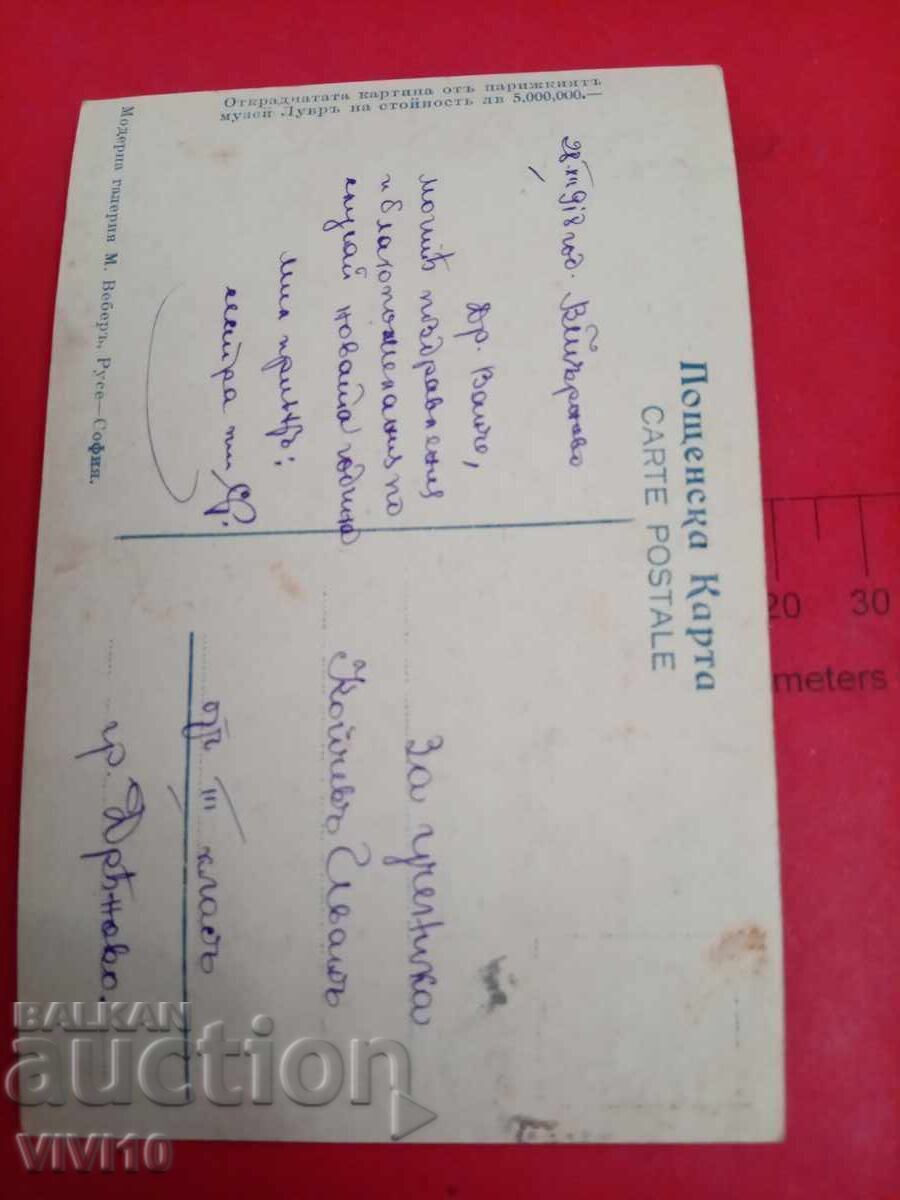 Пощенска Карта
CARTE POSTALE
28.XII 918 год. В.Търново
Др. Ванче,
моитѣ поздравления
и благопожелания по
случай новата година
Мил привѣтъ:
сестра ти
Открадчатата картина отъ парижкиятъ
музей Лувръ на стойность лв 5,000,000.—
Модерна галерия М. Веберъ, Русе—София.
За ученика
Койчевъ Иванъ
отъ III класъ
гр. Дрѣново.
20 30
meters
BALKAN
auction
VIVI10